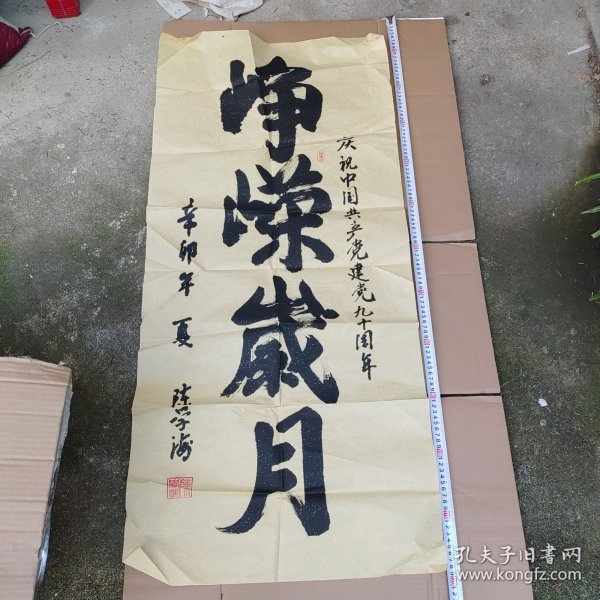 庆祝中国共产党建党九十周年
峥嵘岁月
辛卯年夏
陈学海
孔夫子旧书网
www.kongfz.com